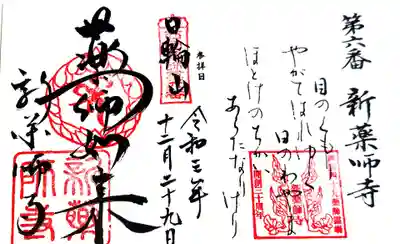 第六番 新薬師寺
目のくもり
やがてはれゆく
日のわやま
ほとけのちかい
あらたなりけり
参拝日
令和三年
十二月二十九日
日輪山
薬師如来
新薬師寺